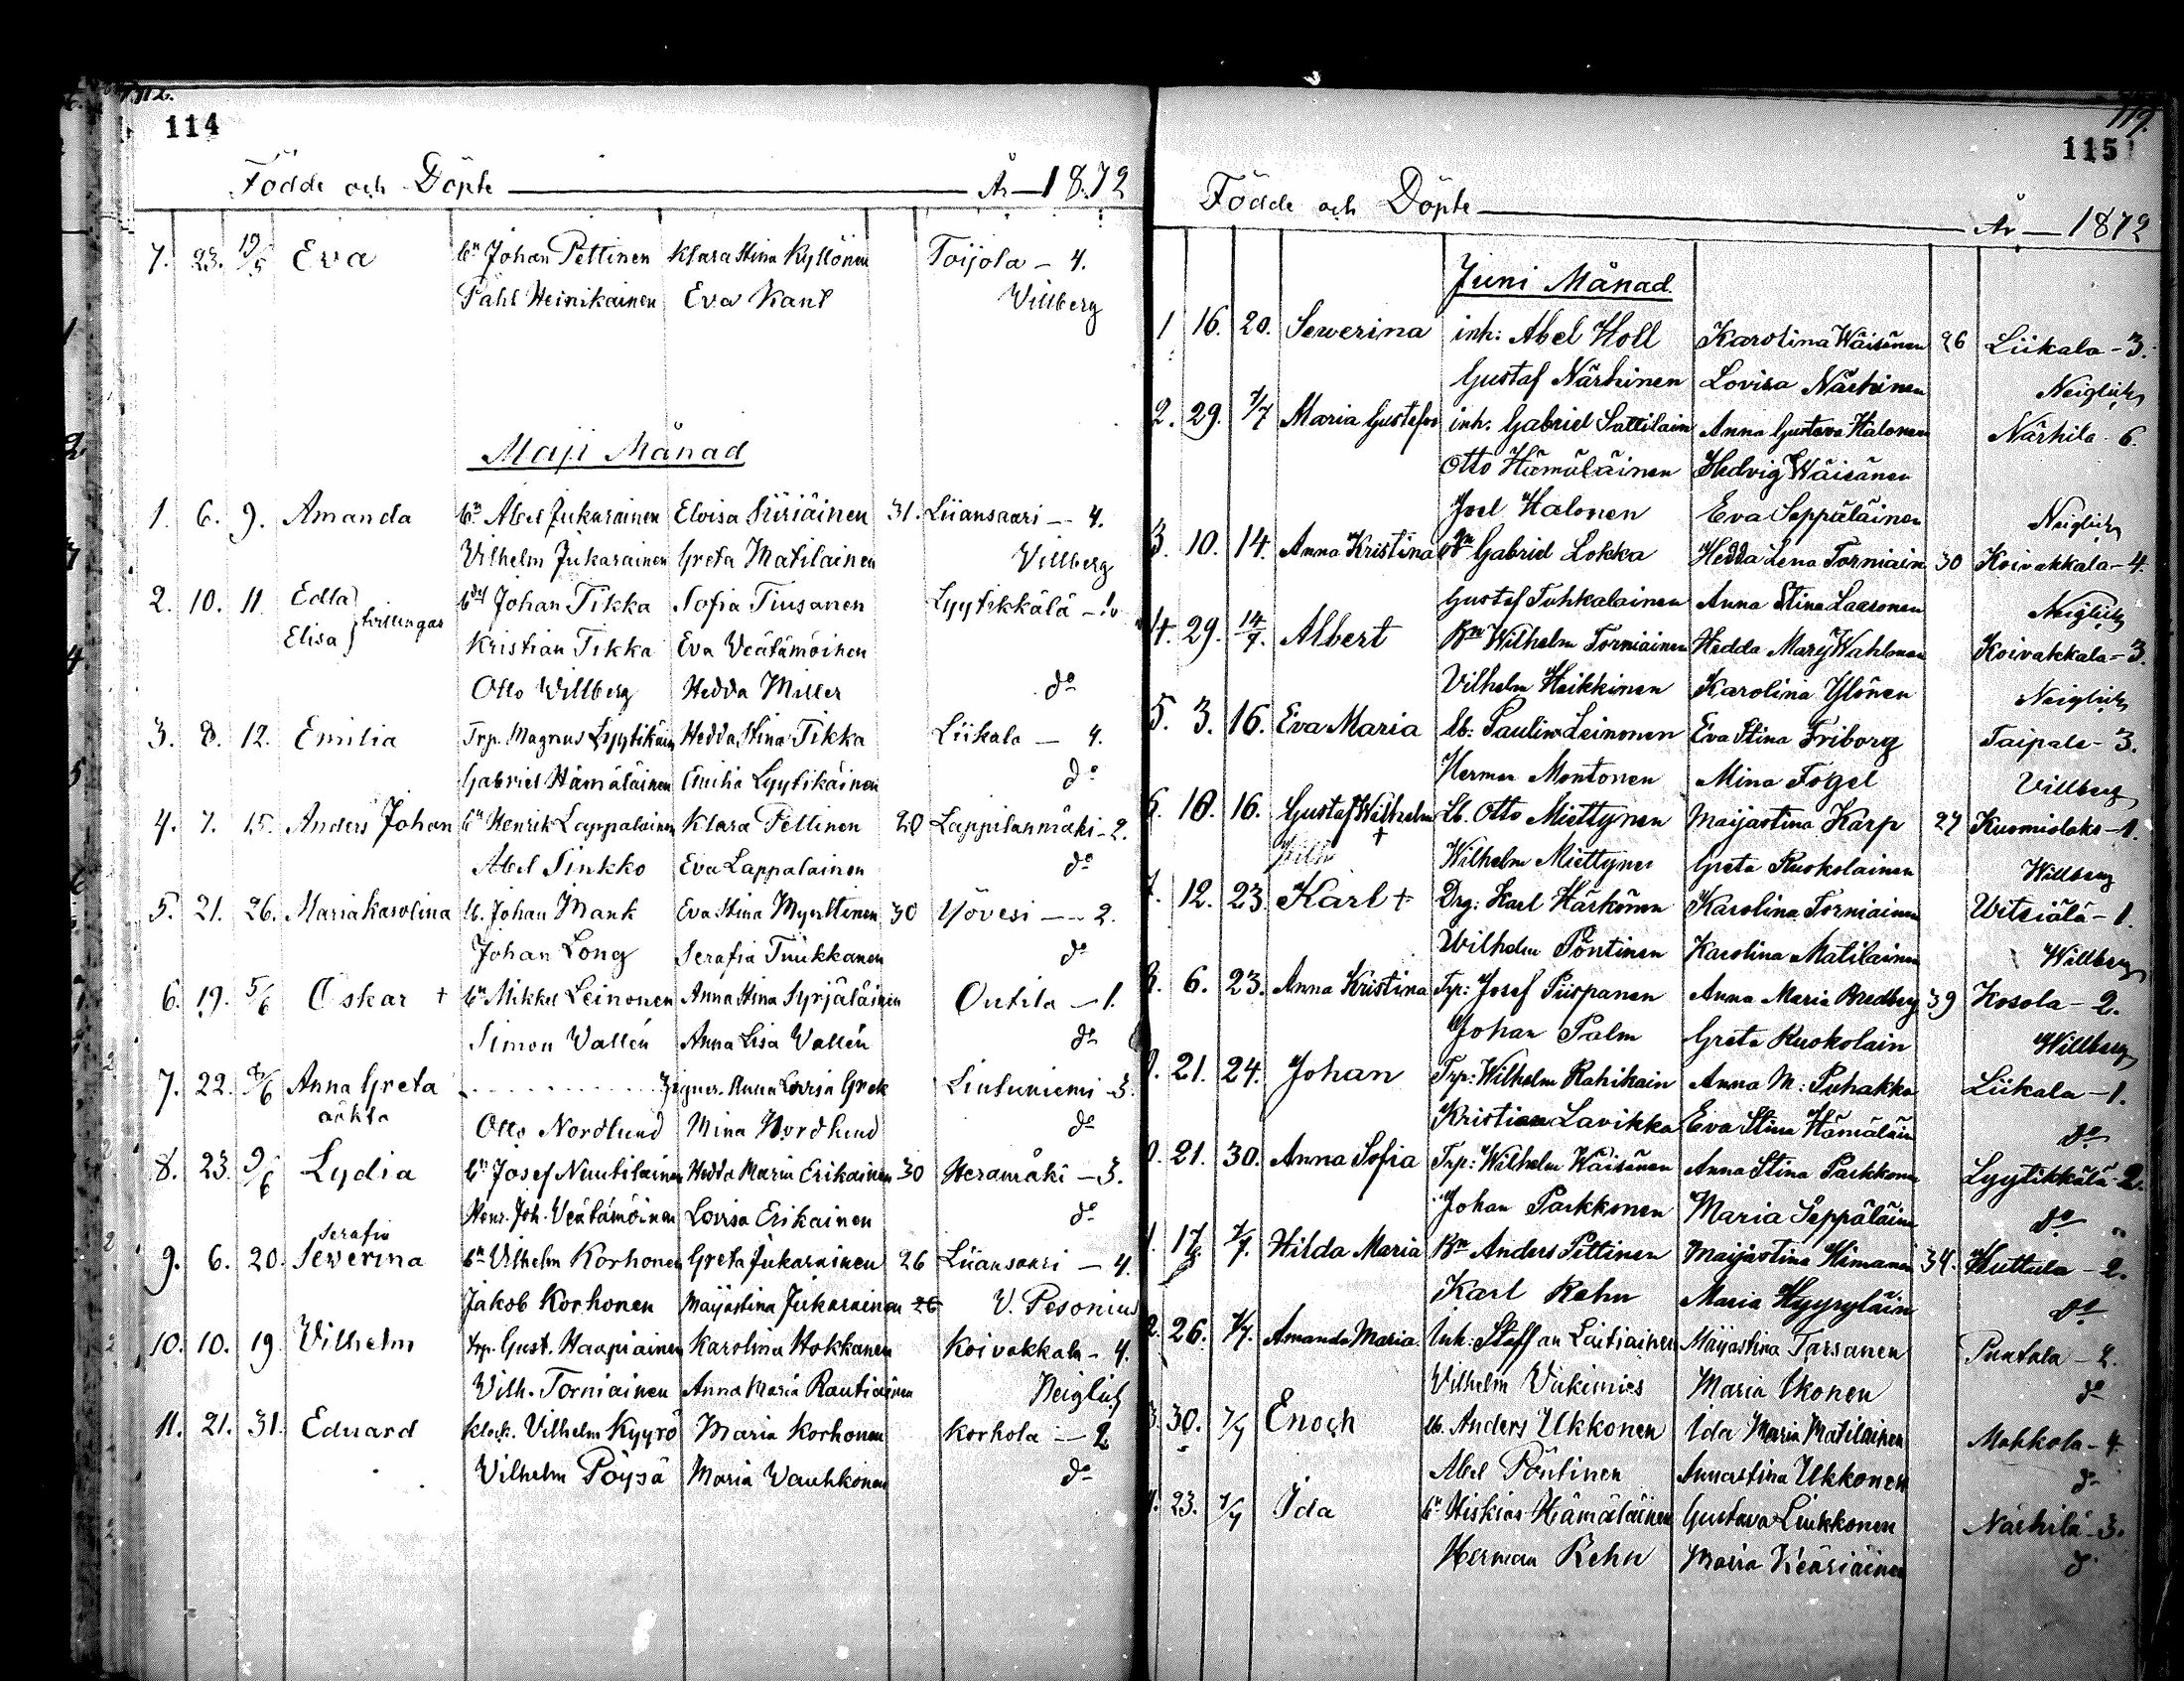 114
Födde och Döpte År 1872
7. 23. 19/5 Eva bn Johan Pettinen Klara Stina Kyllönen Toijola - 4.
Påhl Heinikainen Eva Kant Villberg
Maji Månad
1. 6. 9. Amanda bn Abel Jukarainen Elvisa Siiriäinen 31. Liiansaari - 4.
Vilhelm Jukarainen Greta Matilainen Villberg
2. 10. 11. Edla Elisa } tvillingar Johan Tikka Sofia Tiusanen Lyytikkälä
Kristian Tikka Eva Veätämöinen
Otto Villberg Hedda Miller do
3. 8. 12. Emilia Trp. Magnus Lyytikäin Hedda Stina Tikka Liikala - 4.
Gabriel Hämäläinen Emilia Lyytikäinen do
4. 7. 15. Anders Johan bn Henrik Lappalainen Klara Pettinen 20 Lappilanmäki - 2.
Abel Sinkko Eva Lappalainen do
5. 21. 26. Maria Karolina lb. Johan Mank Eva Stina Myrttinen 30 Yövesi - 2.
Johan Long Serafia Tiukkanen do
6. 19. 5/6 Oskar + bn Mikkel Leinonen Anna Stina Syrjäläinen Outila - 1.
Simon Wallén Anna Lisa Wallén do
7. 22. /6 Anna Greta Anna Lovisa Grek Liutuniemi 3.
oäkta Otto Nordlund Mina Nordlund do
8. 23. 9/6 Lydia bn Josef Nuutilainen Hedda Maria Erikainen 30 Heramäki - 3.
Henr. Joh. Veätämöinen Lovisa Erikainen do
Serafia
9. 6. 20. Severina bn Vilhelm Korhonen Greta Jukarainen 26 Liiansaari - 4.
Jakob Korhonen Maijastina Jukarainen 26 V. Pesonius
10. 10. 19. Vilhelm trp. Gust. Haapiainen Karolina Hokkanen Koivakkala - 4.
Vilh. Torniainen Anna Maria Rautiainen Neiglick
11. 21. 31. Eduard Klock. Vilhelm Kyyrö Maria Korhonen Korhola - 2
Vilhelm Pöysä Maria Wauhkonen do
119.
115
Födde och Döpte År 1872
Juni Månad.
1 16. 20. Sewerina inh: Abel Holl Karolina Wäisänen 26 Liikala - 3.
Gustaf Närhinen Lovisa Närhinen Neiglick
2. 29. 7/7 Maria Gustafva inh. Gabriel Sattilain Anna Gustava Halonen Närhilä 6.
Otto Hämäläinen Hedvig Wäisänen
Joel Halonen Eva Seppäläinen Neiglick
3. 10. 14. Anna Kristina Bn Gabriel Lokka Hedda Lena Torniain 30 Koivakkala - 4.
Gustaf Tuhkalainen Anna Stina Laasonen Neiglick
4. 29. 14/7. Albert Bn Wilhelm Torniainen Hedda Mary Wahlonen Koivakkala - 3.
Vilhelm Heikkinen Karolina Ylönen Neiglick
5. 3. 16. Eva Maria lb: Paulin Leinonen Eva Stina Friborg Taipale - 3.
Herman Montonen Mina Fogel Villberg
6. 10. 16. Gustaf Wilhelm + lb. Otto Miettynen Maijastina Karp 27 Kuomiolaks - 1.
Wilhelm Miettynen Greta Ruokolainen Willberg
7. 12. 23. Karl + Drg: Karl Härkönen Karolina Torniainen Witsiälä - 1.
Wilhelm Pöntinen Karolina Matilainen Willberg
8. 6. 23. Anna Kristina Trp: Josef Piispanen Anna Maria Bredberg 39 Kosola - 2.
Johan Palm Greta Ruokolain Willberg
21. 24. Johan Trp: Wilhelm Rahikain Anna M: Puhakka Liikala - 1.
Kristian Lavikka Eva Stina Hämäläin do
21. 30. Anna Sofia Trp: Wilhelm Wäisänen Anna Stina Parkkonen Lyytikkälä 2.
Johan Parkkonen Maria Seppäläin do
17. 7/7. Hilda Maria Bn Anders Pettinen Maijastina Himanen 34. Huttula - 2.
Karl Rehn Maria Hyyryläin do
26. 7/7. Amanda Maria Inh: Staffan Laitiainen Maijastina Tarsanen Puntala - 2.
Vilhelm Ikonen Maria do
30. 7/7 Enoch lb. Anders Ukkonen Ida Maria Matilainen Mahkola - 4.
Abel Pöntinen Annastina Ukkonen do
23. 7/7 Ida bn Hiskias Hämäläinen Gustava Liukkonen Närhilä 3.
Herman Rehn Maria Keäriäinen